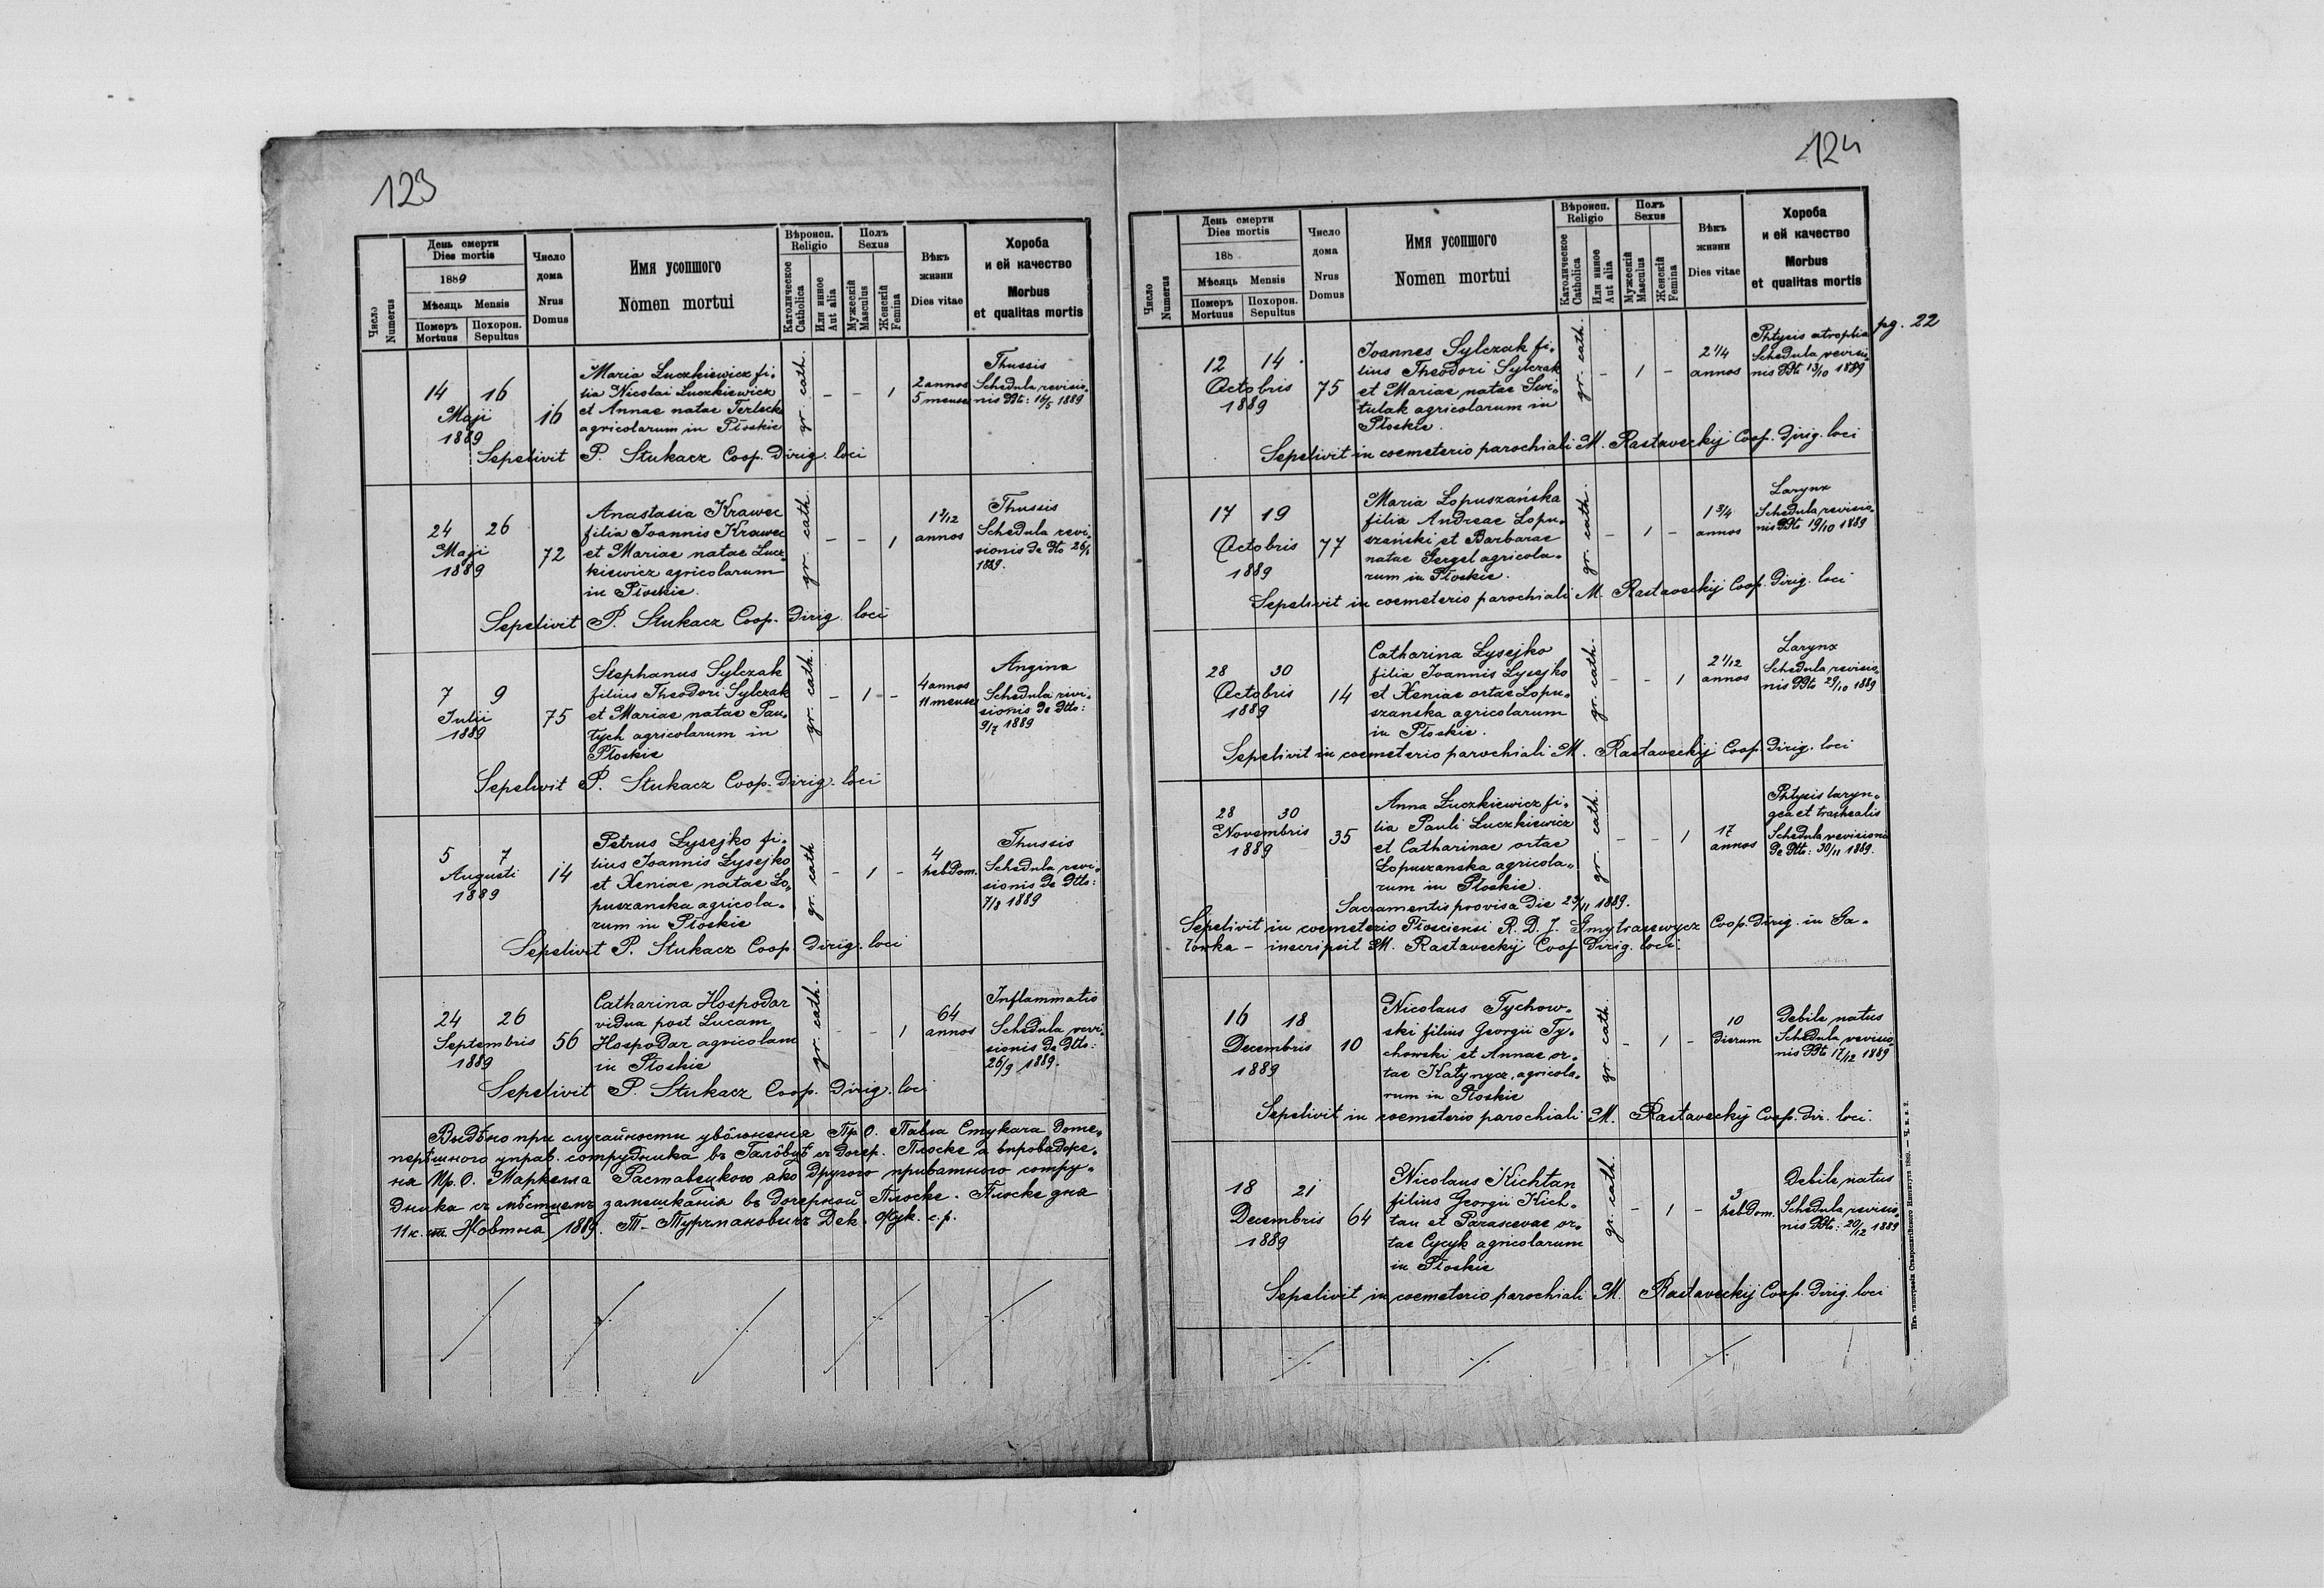 123
День смерти
Dies mortis
1889
Мѣсяць Mensis
Померъ
Mortuus
Похорон.
Sepultus
Число
Numerus
Число
дома
Nrus
Domus
Имя усопшого
Nomen mortui
Вѣроисп.
Religio
Католическое
Catholica
Или инное
Aut alia
Полъ
Sexus
Мужескій
Masculus
Женскій
Femina
Вѣкъ
жизни
Dies vitae
Хороба
и ей качество
Morbus
et qualitas mortis
14 16
Maji
1889
16
Maria Łuczkiewicz fi-
lia Nicolai Łuczkiewicz
et Annae natae Terlecka
agricolarum in Płoskie
gr. cath.
- - 1
2 annos
5 mense
Thussis
Schedula revisio-
nis ddto: 16/5 1889
Sepelivit P. Stukacz Coop. Dirig. loci
24 26
Maji
1889
72
Anastasia Krawec
filia Joannis Krawec
et Mariae natae Łucz-
kiewicz agricolarum
in Płoskie.
gr. cath.
- - 1
annos
Thussis
Schedula revi-
sionis de dto 26/5
1889.
Sepelivit P. Stukacz Coop. Dirig. loci
7 9
Julii
1889
75
Stephanus Sylczak
filius Theodori Sylczak
et Mariae natae Pau-
tych agricolarum in
Płoskie
gr. cath.
- 1 -
4 annos
11 mense
Angina
Schedula revi-
sionis de dtto:
9/7 1889
Sepelivit P. Stukacz Coop. Dirig. loci
5 7
Augusti
1889
14
Petrus Łysejko fi-
lius Joannis Łysejko
et Xeniae natae Ło-
puszanska agricola-
rum in Płoskie
gr. cath
- 1 -
4
hebdom.
Thussis
Schedula revi-
sionis de dtto:
7/8 1889
Sepelivit P. Stukacz Coop Dirig. loci
24 26
Septembris
1889
56
Catharina Hospodar
vidua post Lucam
Hospodar agricolam
in Płoskie
gr. cath.
- - 1
64
annos
Inflammatio
Schedula revi-
sionis de dtto:
26/9 1889.
Sepelivit P. Stukacz Coop. Dirig. loci
Видѣно при случайности увôльненія Пр. О. Павла Стукача доте-
перѣшного управ. сотрудника въ Галôвцѣ съ дочер. Плоске а впроваджe-
ня Пр. О. Маркелла Раставецкого яко другого приватного сотру-
дника съ мѣстцемъ замешканія въ дочерной Плоске. Плоске дня
11 н. ст. Жовтня 1889. Т. Турчмановичъ Дек. Жук. с. р.
124
pg. 22
День смерти
Dies mortis
188
Мѣсяць Mensis
Померъ
Mortuus
Похорон.
Sepultus
Число
Numerus
Число
дома
Nrus
Domus
Имя усопшого
Nomen mortui
Вѣроисп.
Religio
Католическое
Catholica
Или инное
Aut alia
Полъ
Sexus
Мужескій
Masculus
Женскій
Femina
Вѣкъ
жизни
Dies vitae
Хороба
и ей качество
Morbus
et qualitas mortis
12 14
Octobris
1889
75
Joannes Sylczak fi-
lius Theodori Sylczak
et Mariae natae Swi-
tulak agricolarum in
Płoskie.
gr. cath.
- 1 -
2 1/4
annos
Phtysis atrophia
Schedula revisio-
nis ddto 13/10 1889
Sepelivit in coemeterio parochiali M. Rastaveckij Coop. Dirig. loci
17 19
Octobris
1889
77
Maria Łopuszańska
filia Andreae Łopu-
szański et Barbarae
natae Gergel agricola-
rum in Płoskie.
gr. cath.
- 1 -
1 3/4
annos
Larynx
Schedula revisio-
nis ddto 19/10 1889
Sepelivit in coemeterio parochiali M. Rastaveckij Coop. Dirig. loci
28 30
Octobris
1889
14
Catharina Łysejko
filia Joannis Łysejko
et Xeniae ortae Łopu-
szanska agricolarum
in Płoskie.
gr. cath.
- - 1
2 1/12
annos
Larynx
Schedula revisio-
nis ddto 29/10 1889
Sepelivit in coemeterio parochiali M. Rastaveckij Coop. Dirig. loci
28 30
Novembris
1889
35
Anna Łuczkiewicz fi-
lia Pauli Łuczkiewicz
et Catharinae ortae
Łopuszanska agricola-
rum in Płoskie.
gr. cath.
- - 1
17
annos
Phtysis laryn-
gea et trachealis
Schedula revisionis
de dtto: 30/11 1889.
Sacramentis provisa die 25/11 1889.
Sepelivit in coemeterio Płosciensi R. D. J. Gmytrasewycz Coop. Dirig. in Ga-
łowka - inscripsit M. Rastaveckij Coop Dirig. loci
16 18
Decembris
1889
10
Nicolaus Tychow-
ski filius Georgii Ty-
chowski et Annae or-
tae Katynycz, agricola-
rum in Płoskie
gr. cath.
- 1 -
10
dierum
Debile natus
Schedula revisio-
nis ddto 17/12 1889
Sepelivit in coemeterio parochiali M. Rastaveckij Coop. Dir. loci.
18 21
Decembris
1889
64
Nicolaus Kichtan
filius Georgii Kich-
tan et Parascevae or-
tae Cycyk agricolarum
in Płoskie
gr. cath.
- 1 -
3
hebdom.
Debile natus
Schedula revisio-
nis ddto: 20/12 1889
Sepelivit in coemeterio parochiali M. Rastaveckij Coop. Dirig. loci
Изъ типографіи Ставропигійского Института 1889. — Ч. в. к. 2.